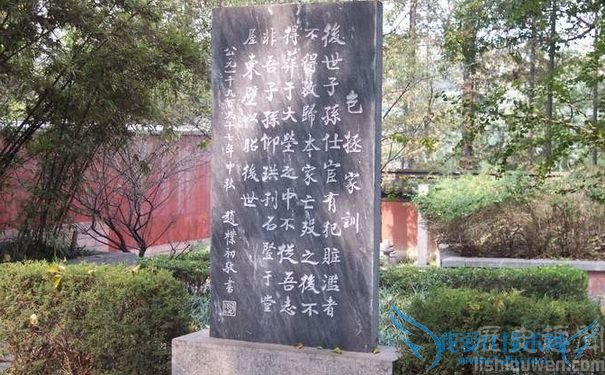 包拯家訓
後世子孫仕宦有犯贓濫者
不得放歸本家亡殁之後不
得葬于大塋之中不從吾志
非吾子孫仰珙刊石竪于堂
屋東壁以昭後世
公元一千九百十七年中秋 趙樸初敬書
历史趣闻
lishiquwen.com